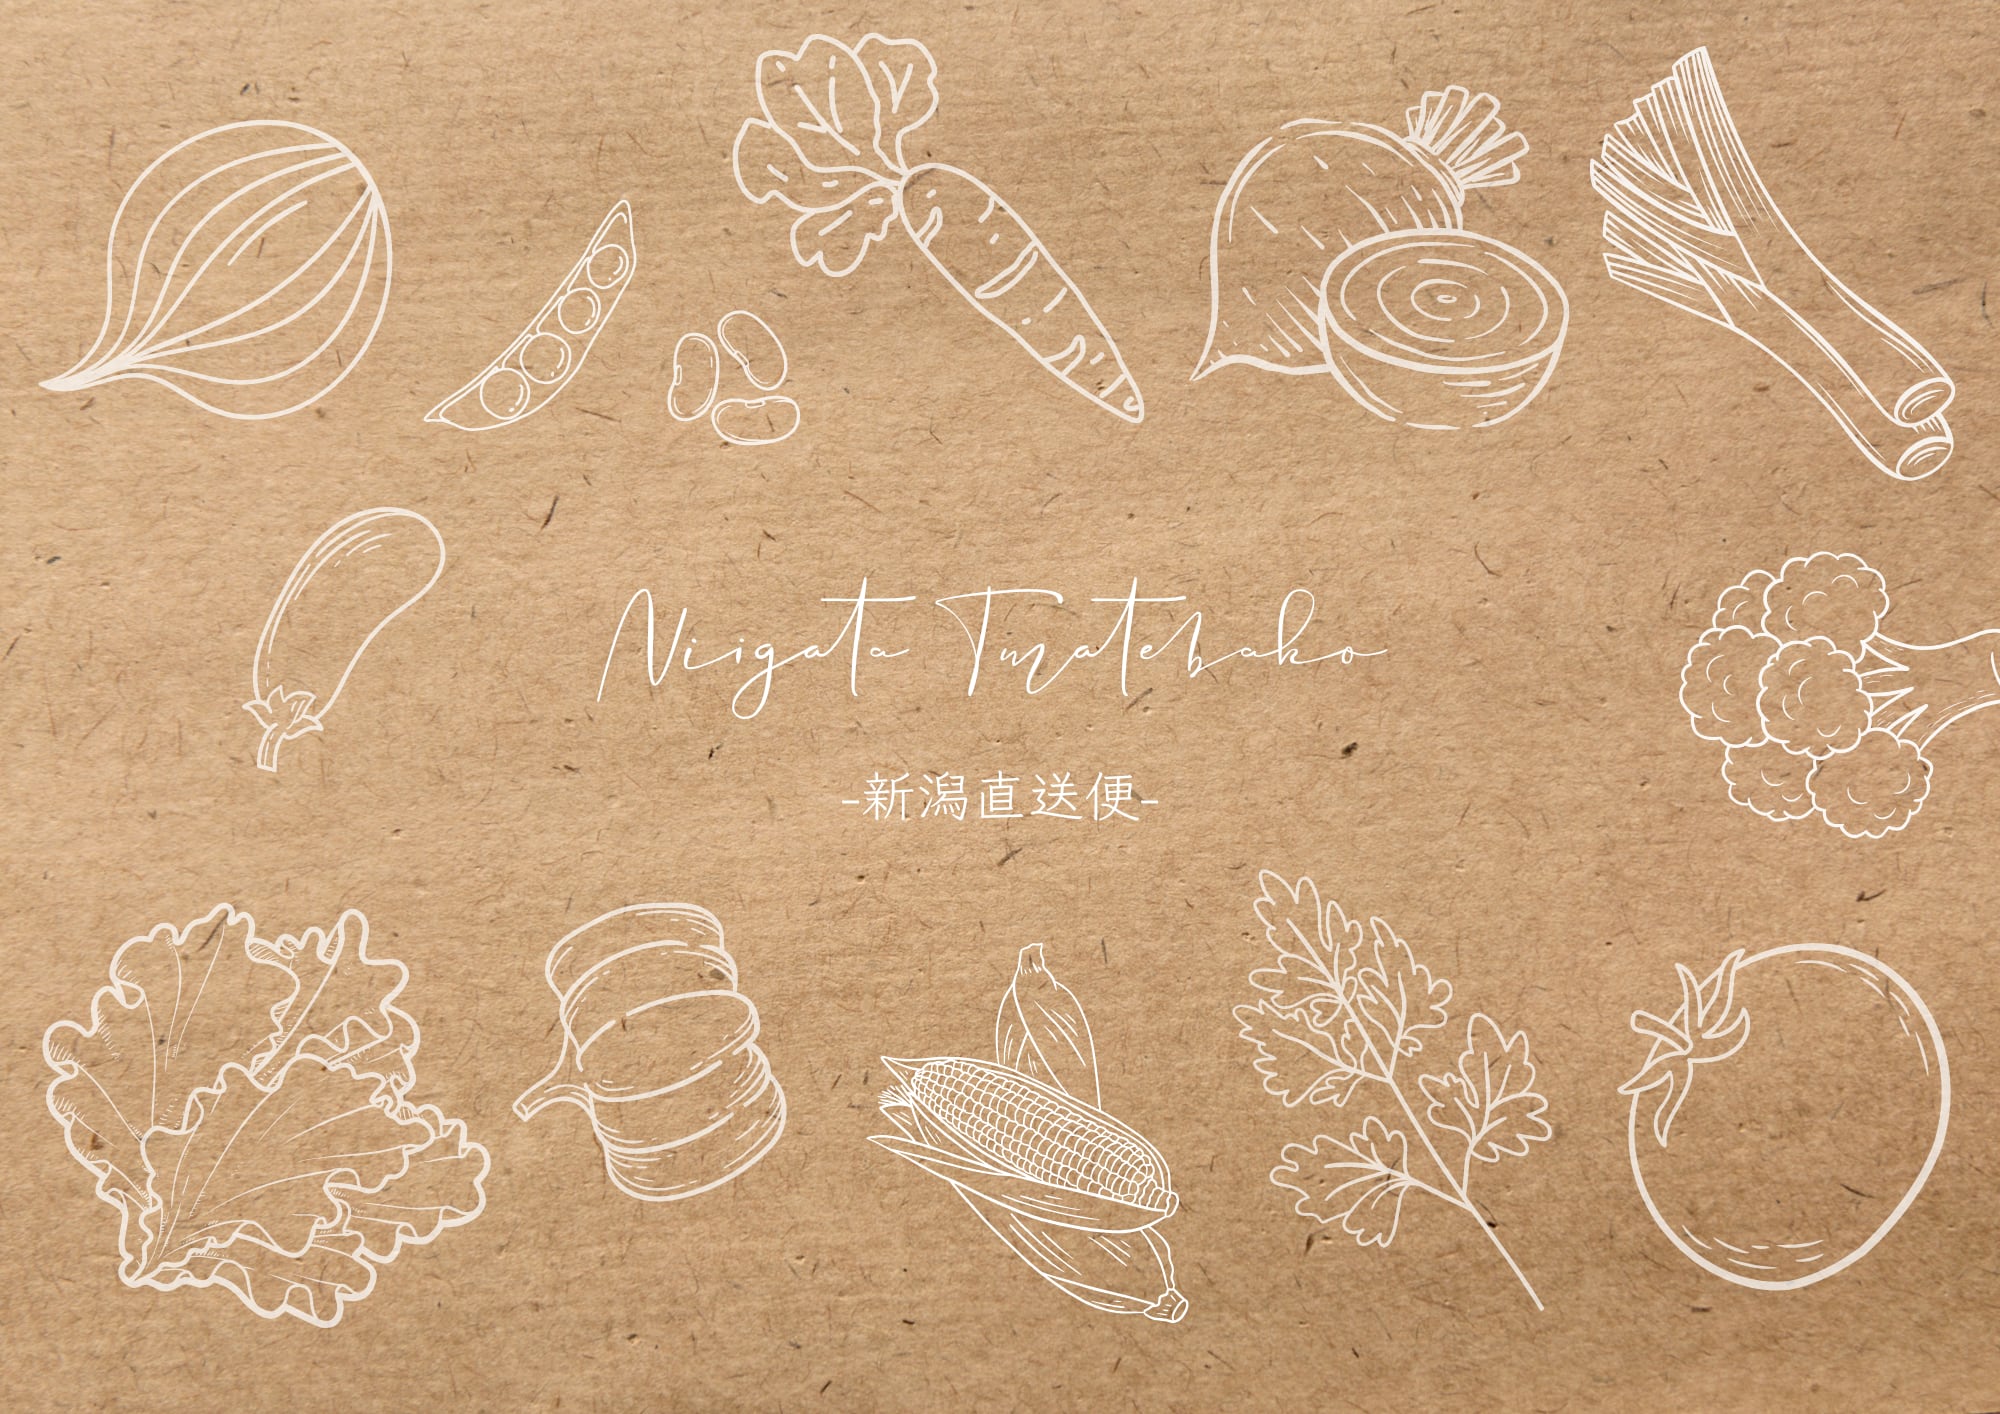 Niigata Tmatebako
-新潟直送便-